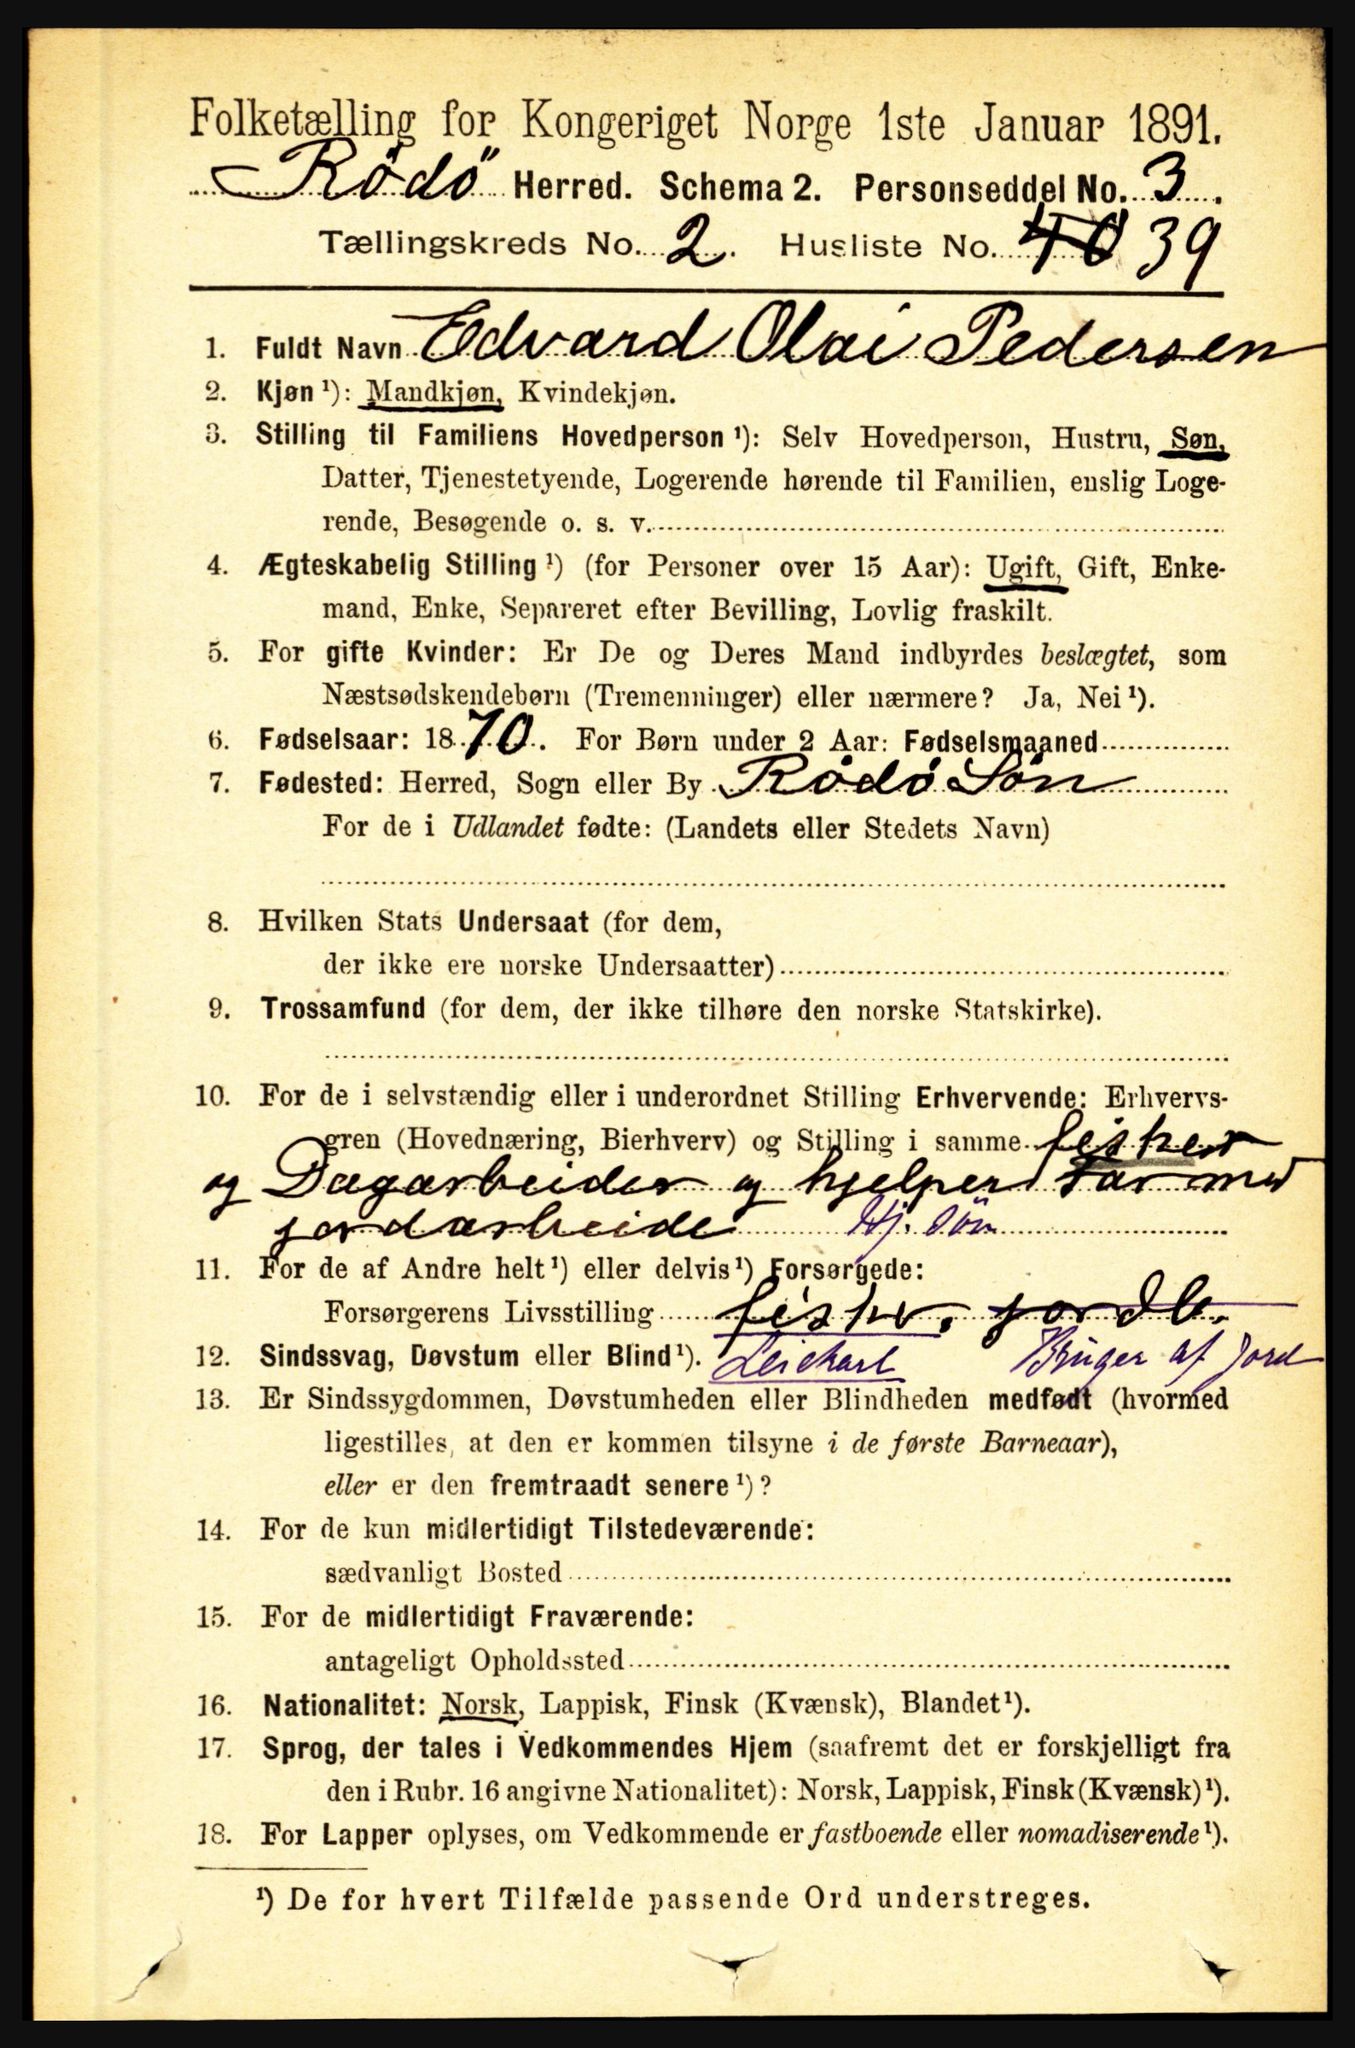 Folketælling for Kongeriget Norge 1ste Januar 1891.
Rödö Herred. Schema 2. Personseddel No. 3.
Tællingskreds No. 2. Husliste No. 40 39
1. Fuldt Navn Edvard Olai Pedersen
2. Kjøn ¹): Mandkjøn, Kvindekjøn.
3. Stilling til Familiens Hovedperson ¹): Selv Hovedperson, Hustru, Søn,
Datter, Tjenestetyende, Logerende hørende til Familien, enslig Loge-
rende, Besøgende o. s. v.
4. Ægteskabelig Stilling ¹) (for Personer over 15 Aar): Ugift, Gift, Enke-
mand, Enke, Separeret efter Bevilling, Lovlig fraskilt.
5. For gifte Kvinder: Er De og Deres Mand indbyrdes beslægtet, som
Næstsødskendebørn (Tremenninger) eller nærmere? Ja, Nei ¹).
6. Fødselsaar: 1870. For Børn under 2 Aar: Fødselsmaaned
7. Fødested: Herred, Sogn eller By Rödö Sön
For de i Udlandet fødte: (Landets eller Stedets Navn)
8. Hvilken Stats Undersaat (for dem,
der ikke ere norske Undersaatter)
9. Trossamfund (for dem, der ikke tilhøre den norske Statskirke).
10. For de i selvstændig eller i underordnet Stilling Erhvervende: Erhvervs-
gren (Hovednæring, Bierhverv) og Stilling i samme fisker
og Dagarbeider og hjelper Far med
jordarbeide Hj. Sön
11. For de af Andre helt ¹) eller delvis ¹) Forsørgede:
Forsørgerens Livsstilling fisker, jordb.
12. Sindssvag, Døvstum eller Blind ¹). Leiekarl Bruger af Jord
13. Er Sindssygdommen, Døvstumheden eller Blindheden medfødt (hvormed
ligestilles, at den er kommen tilsyne i de første Barneaar),
eller er den fremtraadt senere ¹)?
14. For de kun midlertidigt Tilstedeværende:
sædvanligt Bosted
15. For de midlertidigt Fraværende:
antageligt Opholdssted
16. Nationalitet: Norsk, Lappisk, Finsk (Kvænsk), Blandet ¹).
17. Sprog, der tales i Vedkommendes Hjem (saafremt det er forskjelligt fra
den i Rubr. 16 angivne Nationalitet): Norsk, Lappisk, Finsk (Kvænsk) ¹).
18. For Lapper oplyses, om Vedkommende er fastboende eller nomadiserende ¹).
¹) De for hvert Tilfælde passende Ord understreges.